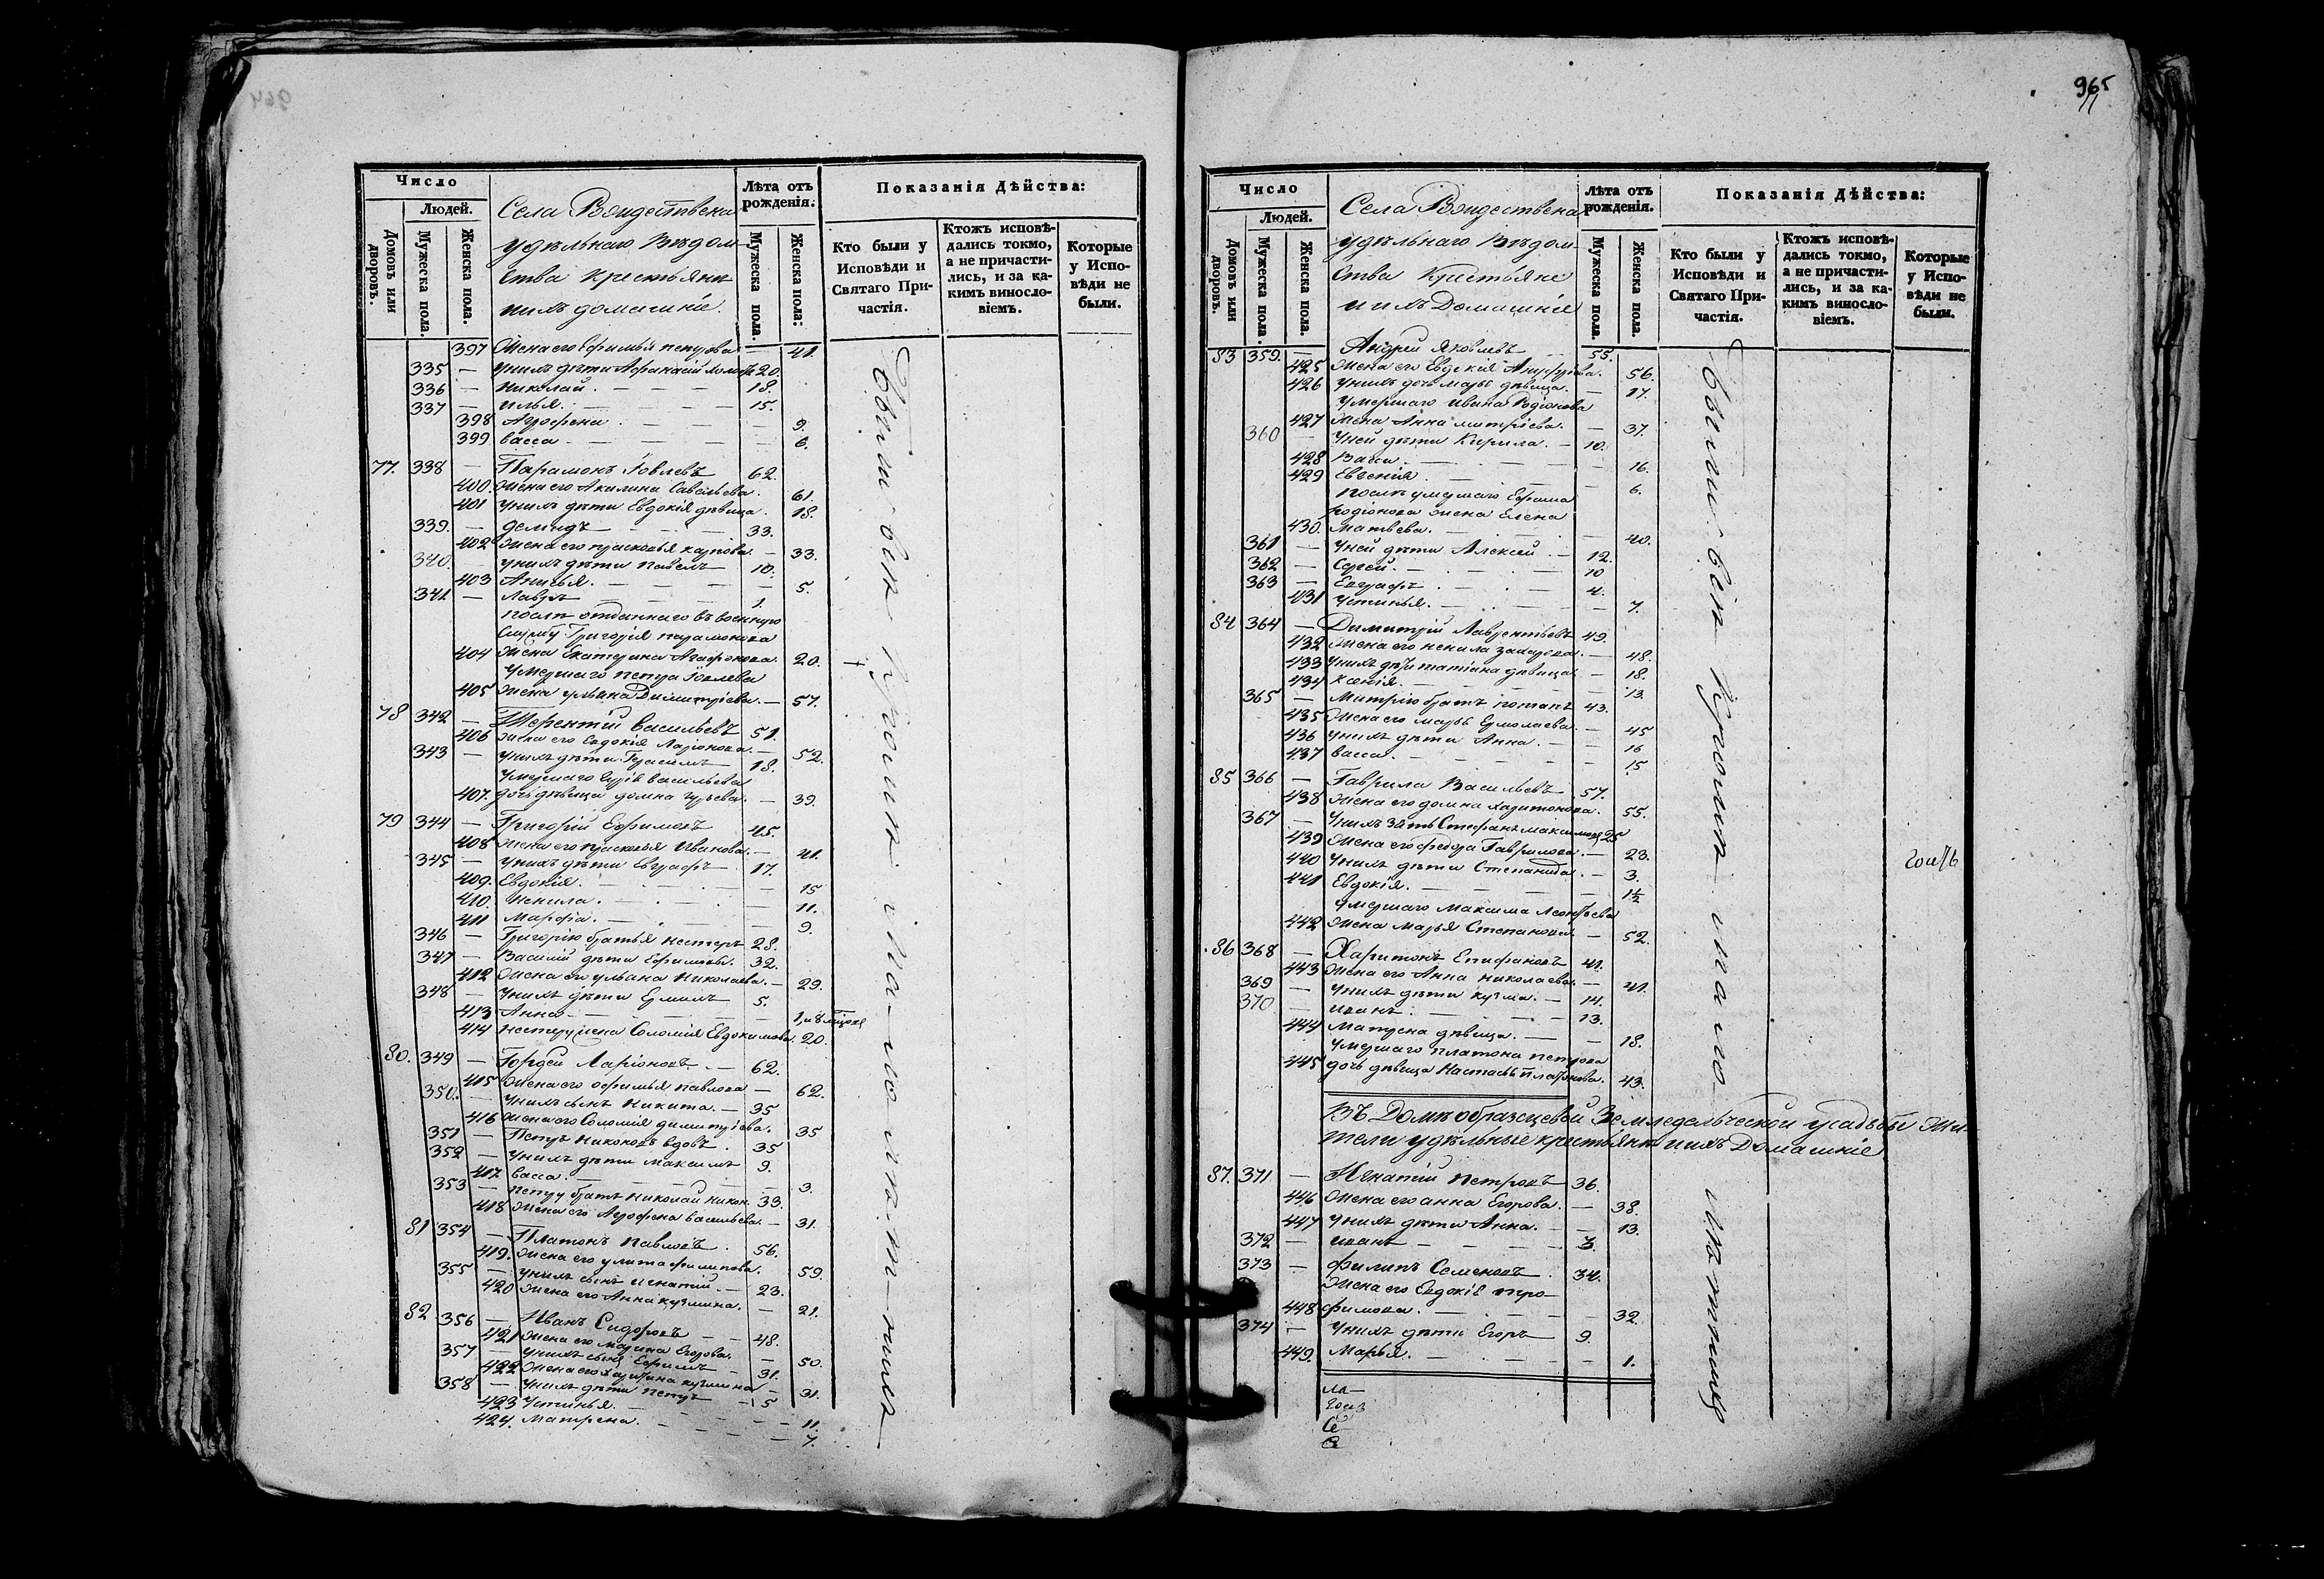 964
Число
Людей.
Домовъ или дворовъ.
Мужеска пола.
Женска пола.
Села Рождествена
удѣльнаго Вѣдом-
ства крестьяне
и ихъ домашніе.
Лѣта отъ рожденія.
Мужеска пола.
Женска пола:
Показанія Дѣйства:
Кто были у Исповѣди и Святаго Причастія.
Ктожъ исповѣдались токмо, а не причастились, и за какимъ винословіемъ.
Которые у Исповѣди не были.
397 Жена его Ефимья петрова — 41.
335 — у нихъ дѣти Афанасій 20.
336 — николай. — 18.
337 — илья. — 15.
398 Агрофена. — 9.
399 васса — 6.
77. 338 — Парамонъ Іовлевъ 62.
400. Жена его Акилина Савельева. 61.
401 у нихъ дѣти Евдокія дѣвица. 18.
339. — Демидъ — 33.
402 Жена его прасковья карпова. — 33.
340. — у нихъ дѣти павелъ 10.
403 Анисья. — 5.
341. — Лавръ — 1.
послѣ отданнаго въ военную
Службу Григорія парамонова
404 Жена Екатерина Агафонова. 20. +
Умершаго петра Іовлева
405 Жена ульяна Димитріева. — 57.
78 342 — Терентій васильевъ 51.
406 Жена его Евдокія Ларіонова. — 52.
343 — у нихъ дѣти Герасимъ 18.
Умершаго васильева
407. дочь дѣвица домна гурьева. — 39.
79 344 — Григорій Ефимовъ 45.
408 Жена его прасковья Иванова. — 41.
345 — у нихъ дѣти Евграфъ 17.
409. Евдокія. — 15
410. Ненила. — 11.
411 Марфа. — 9.
346 — Григорію братья нестеръ 28.
347 — Василій дѣти Ефимовы. 32.
412 Жена его ульяна Николаева. — 29.
348 — у нихъ дѣти Ермилъ 5.
413 Анна
414 нестеру жена Соломія Евдокимова. 20.
80. 349 — Гордей Ларіоновъ. — 62.
415 Жена его офимья павлова — 62.
350. — у нихъ сынъ Никита. — 35
416 Жена его Соломія димитріева. 35
351 — Петръ Никоновъ вдовъ. 35
352 — у нихъ дѣти Максимъ 9.
417 васса. — 3.
353 — петру братъ Николай никон. 33.
418 Жена его Агрофена васильева. — 31.
81 354 — Платонъ павловъ. 56.
419. Жена его улита филипова. 59.
355 — у нихъ сынъ игнатій. — 23.
420 Жена его Анна кузмина. — 21.
82 356 — Иванъ Сидоровъ — 48.
421 Жена его марина Егорова. — 50.
357 — у нихъ сынъ Ефимъ — 31.
422 Жена его кузмина — 31.
358 — у нихъ дѣти петръ — 5
423 Устинья. — 11.
424. Матрена. — 7.
965
Число
Людей.
Домовъ или дворовъ.
Мужеска пола.
Женска пола.
Села Рождествена
удѣльнаго Вѣдом-
ства Крестьяне
и ихъ Домашніе
Лѣта отъ рожденія.
Мужеска пола.
Женска пола.
Показанія Дѣйства:
Кто были у Исповѣди и Святаго Причастія.
Ктожъ исповѣдались токмо, а не причастились, и за какимъ винословіемъ.
Которые у Исповѣди не были.
83 359. — Андрей Яковлевъ 55.
425 Жена его Евдокія 56.
426 у нихъ дочь марья дѣвица. — 17.
Умершаго ивана Родіонова
427 Жена Анна митріева. — 37.
360 — у ней дѣти Кирила. — 10.
428 Васса. — 16.
429 Евгенія. — 6.
послѣ умершаго Ефима
родіонова жена Елена
430. Матвева. — 40.
361 — у ней дѣти Алексей. — 12.
362 — Сергей. — 10
363 — Евграфъ — 4.
431 Устинья. — 7.
84 364 — Димитрій Лаврентьевъ 49.
432 Жена его ненила захарова. — 48.
433 у нихъ дѣти татіана дѣвица — 18.
434 Ксенія. — 13.
365 — Митрію братъ потапъ 43.
435 Жена его марья Ермолаева. — 45
436 у нихъ дѣти Анна. — 16
437 васса. — 15.
85 366 — Гаврила Васильевъ 57.
438 Жена его домна харитонова. 55.
367 — у нихъ зять Стефанъ максимовъ 25
439 Жена его Гаврилова. — 23.
440 у нихъ дѣти Степанида. — 3.
441 Евдокія. — 1½
умершаго Максима Леонтьева
442 Жена марья Степанова. — 52.
86 368 — Харитонъ Епифановъ 41.
443 Жена его Анна николаева. — 41.
369 — у нихъ дѣти кузма. — 14.
370 — иванъ. — 13.
444 Матрена дѣвица. — 18.
умершаго платона петрова
445 дочь дѣвица Настасья платонова. 43.
Въ Домѣ образцевой Земледельческой усадьбы Жи-
тели удѣльные крестьяне и ихъ Домашніе
87. 371 — Игнатій петровъ 36.
446 Жена его анна Егорова. — 38.
447 у нихъ дѣти Анна. — 13.
372 — иванъ — 3.
373 — Филипъ Семеновъ. 34.
Жена его Евдокія тро-
448 фимова. — 32.
374 — у нихъ дѣти Егоръ 9.
449. Марья. — 1.